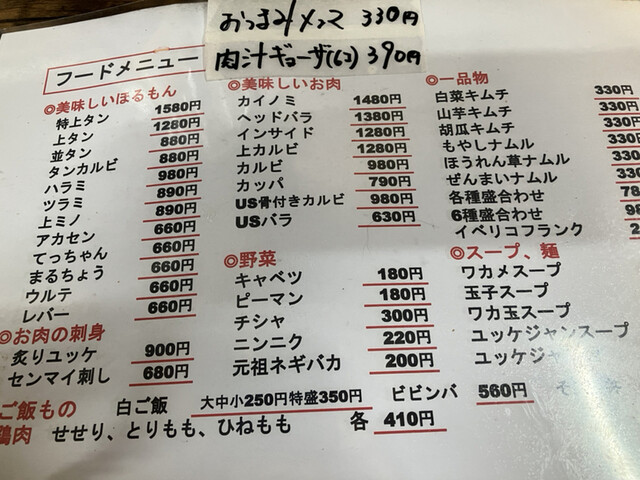 おつまみメンマ 330円
肉汁ギョーザ(6コ) 390円
フードメニュー
◎美味しいほるもん
特上タン 1580円
上タン 1280円
並タン 880円
タンカルビ 880円
ハラミ 980円
ツラミ 890円
上ミノ 890円
アカセン 660円
てっちゃん 660円
まるちょう 660円
ウルテ 660円
レバー 660円
◎お肉の刺身
炙りユッケ 900円
センマイ刺し 680円
◎美味しいお肉
カイノミ 1480円
ヘッドバラ 1380円
インサイド 1280円
上カルビ 1280円
カルビ 980円
カッパ 790円
US骨付きカルビ 980円
USバラ 630円
◎野菜
キャベツ 180円
ピーマン 180円
チシャ 300円
ニンニク 220円
元祖ネギバカ 200円
◎一品物
白菜キムチ 330円
山芋キムチ 330円
胡瓜キムチ 330円
もやしナムル 330
ほうれん草ナムル 330
ぜんまいナムル 330
各種盛合わせ
6種盛合わせ
イベリコフランク
◎スープ、麺
ワカメスープ
玉子スープ
ワカ玉スープ
ユッケジャンスープ
ユッケジャ
ご飯もの 白ご飯 大中小250円特盛350円 ビビンバ 560円
鶏肉 せせり、とりもも、ひねもも 各 410円